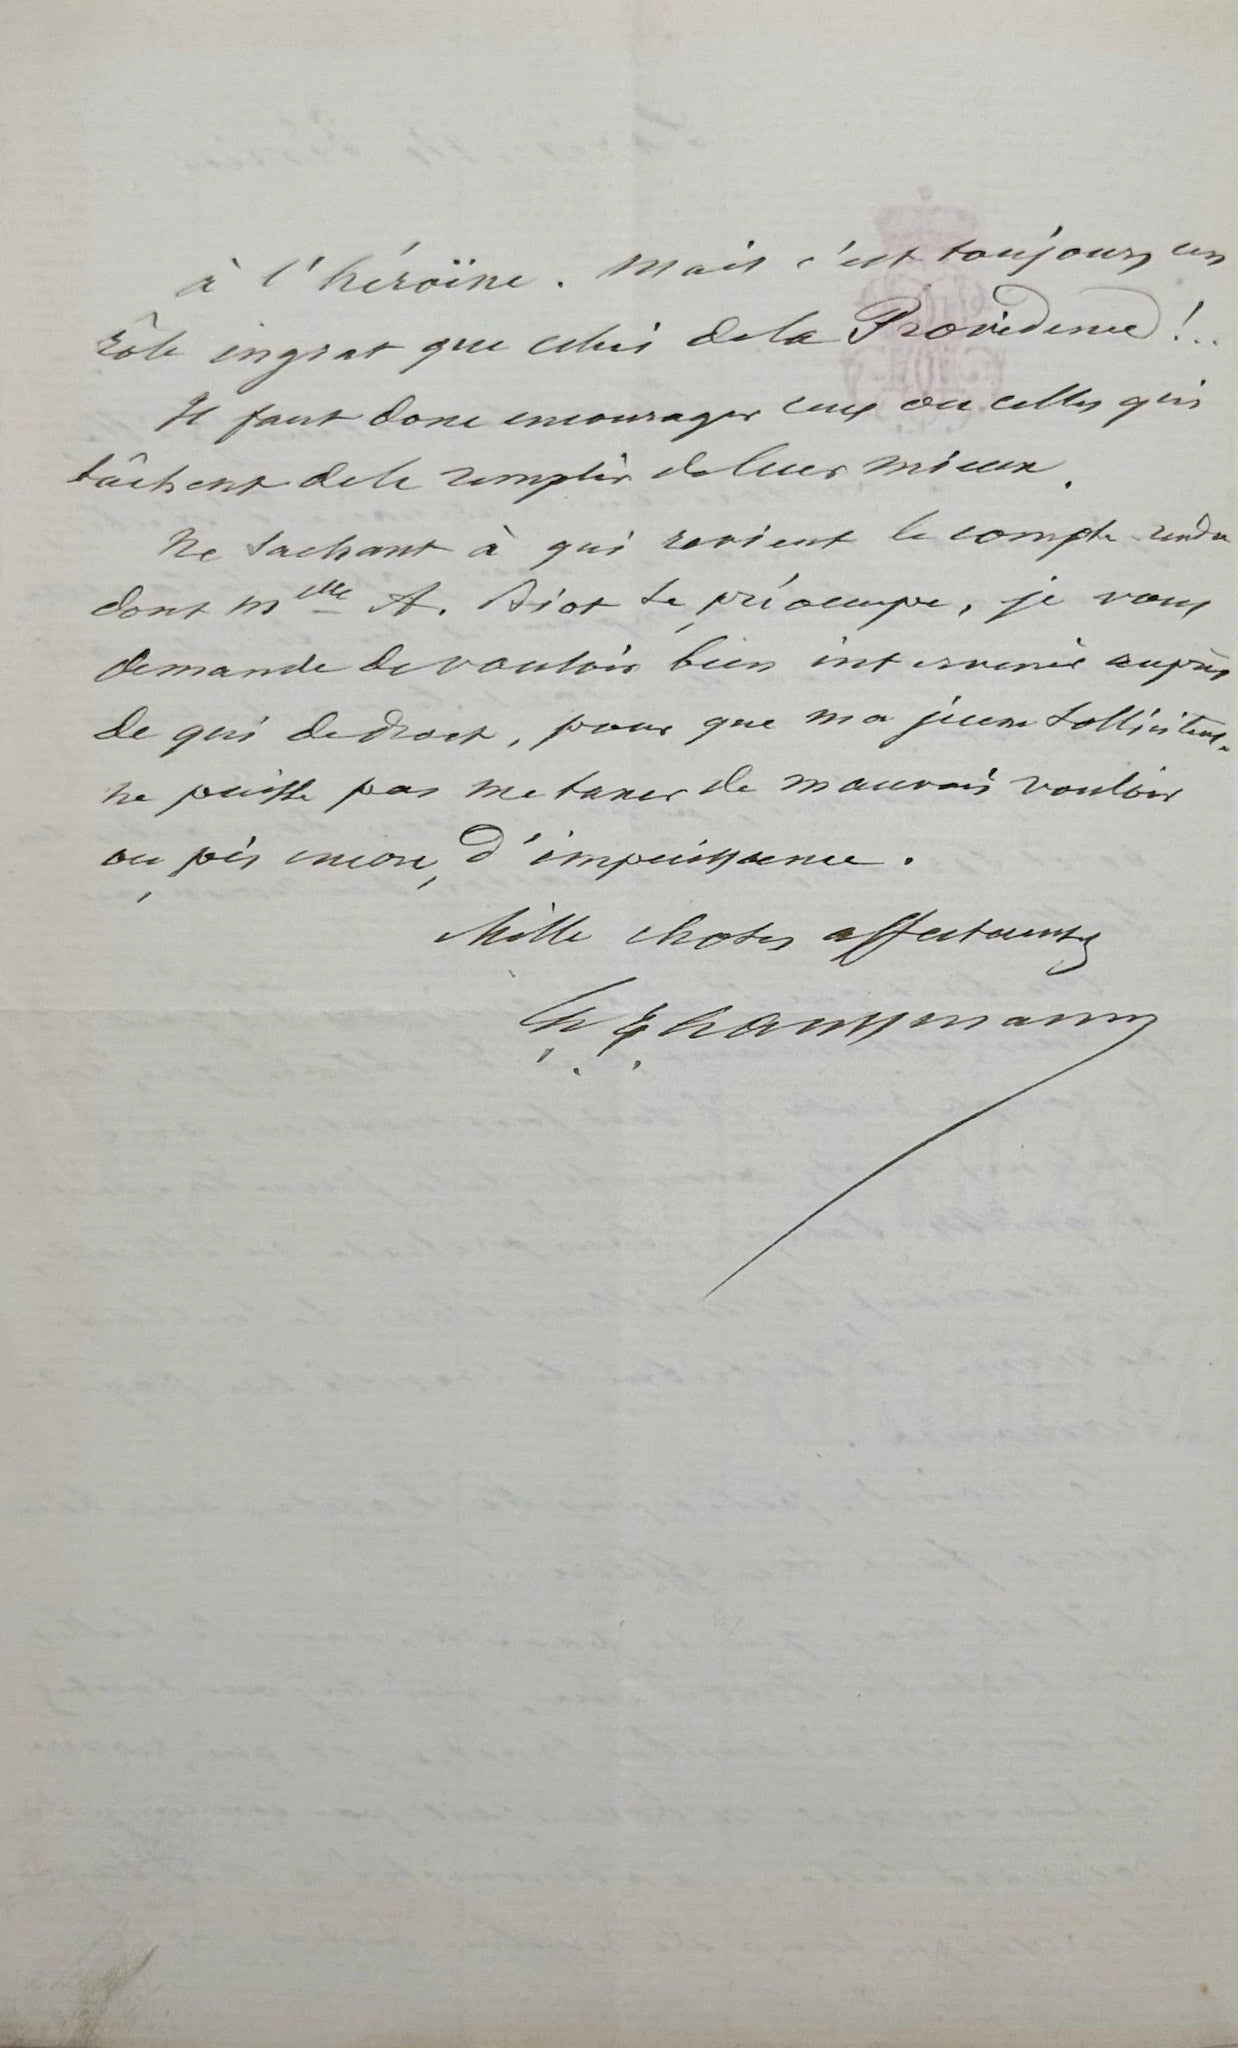 à l'héroïne. Mais c'est toujours un
rôle ingrat que celui de la Providence!..
Il faut donc encourager ceux ou celles qui
tâchent de le remplir de leur mieux.
Ne sachant à qui revient le compte-rendu
dont Mlle A. Biot se préoccupe, je vous
demande de vouloir bien intervenir auprès
de qui de droit, pour que ma jeune solliciteuse
ne puisse pas me taxer de mauvais vouloir
ou, pis encore, d'impuissance.
Mille choses affectueuses
Haussmann